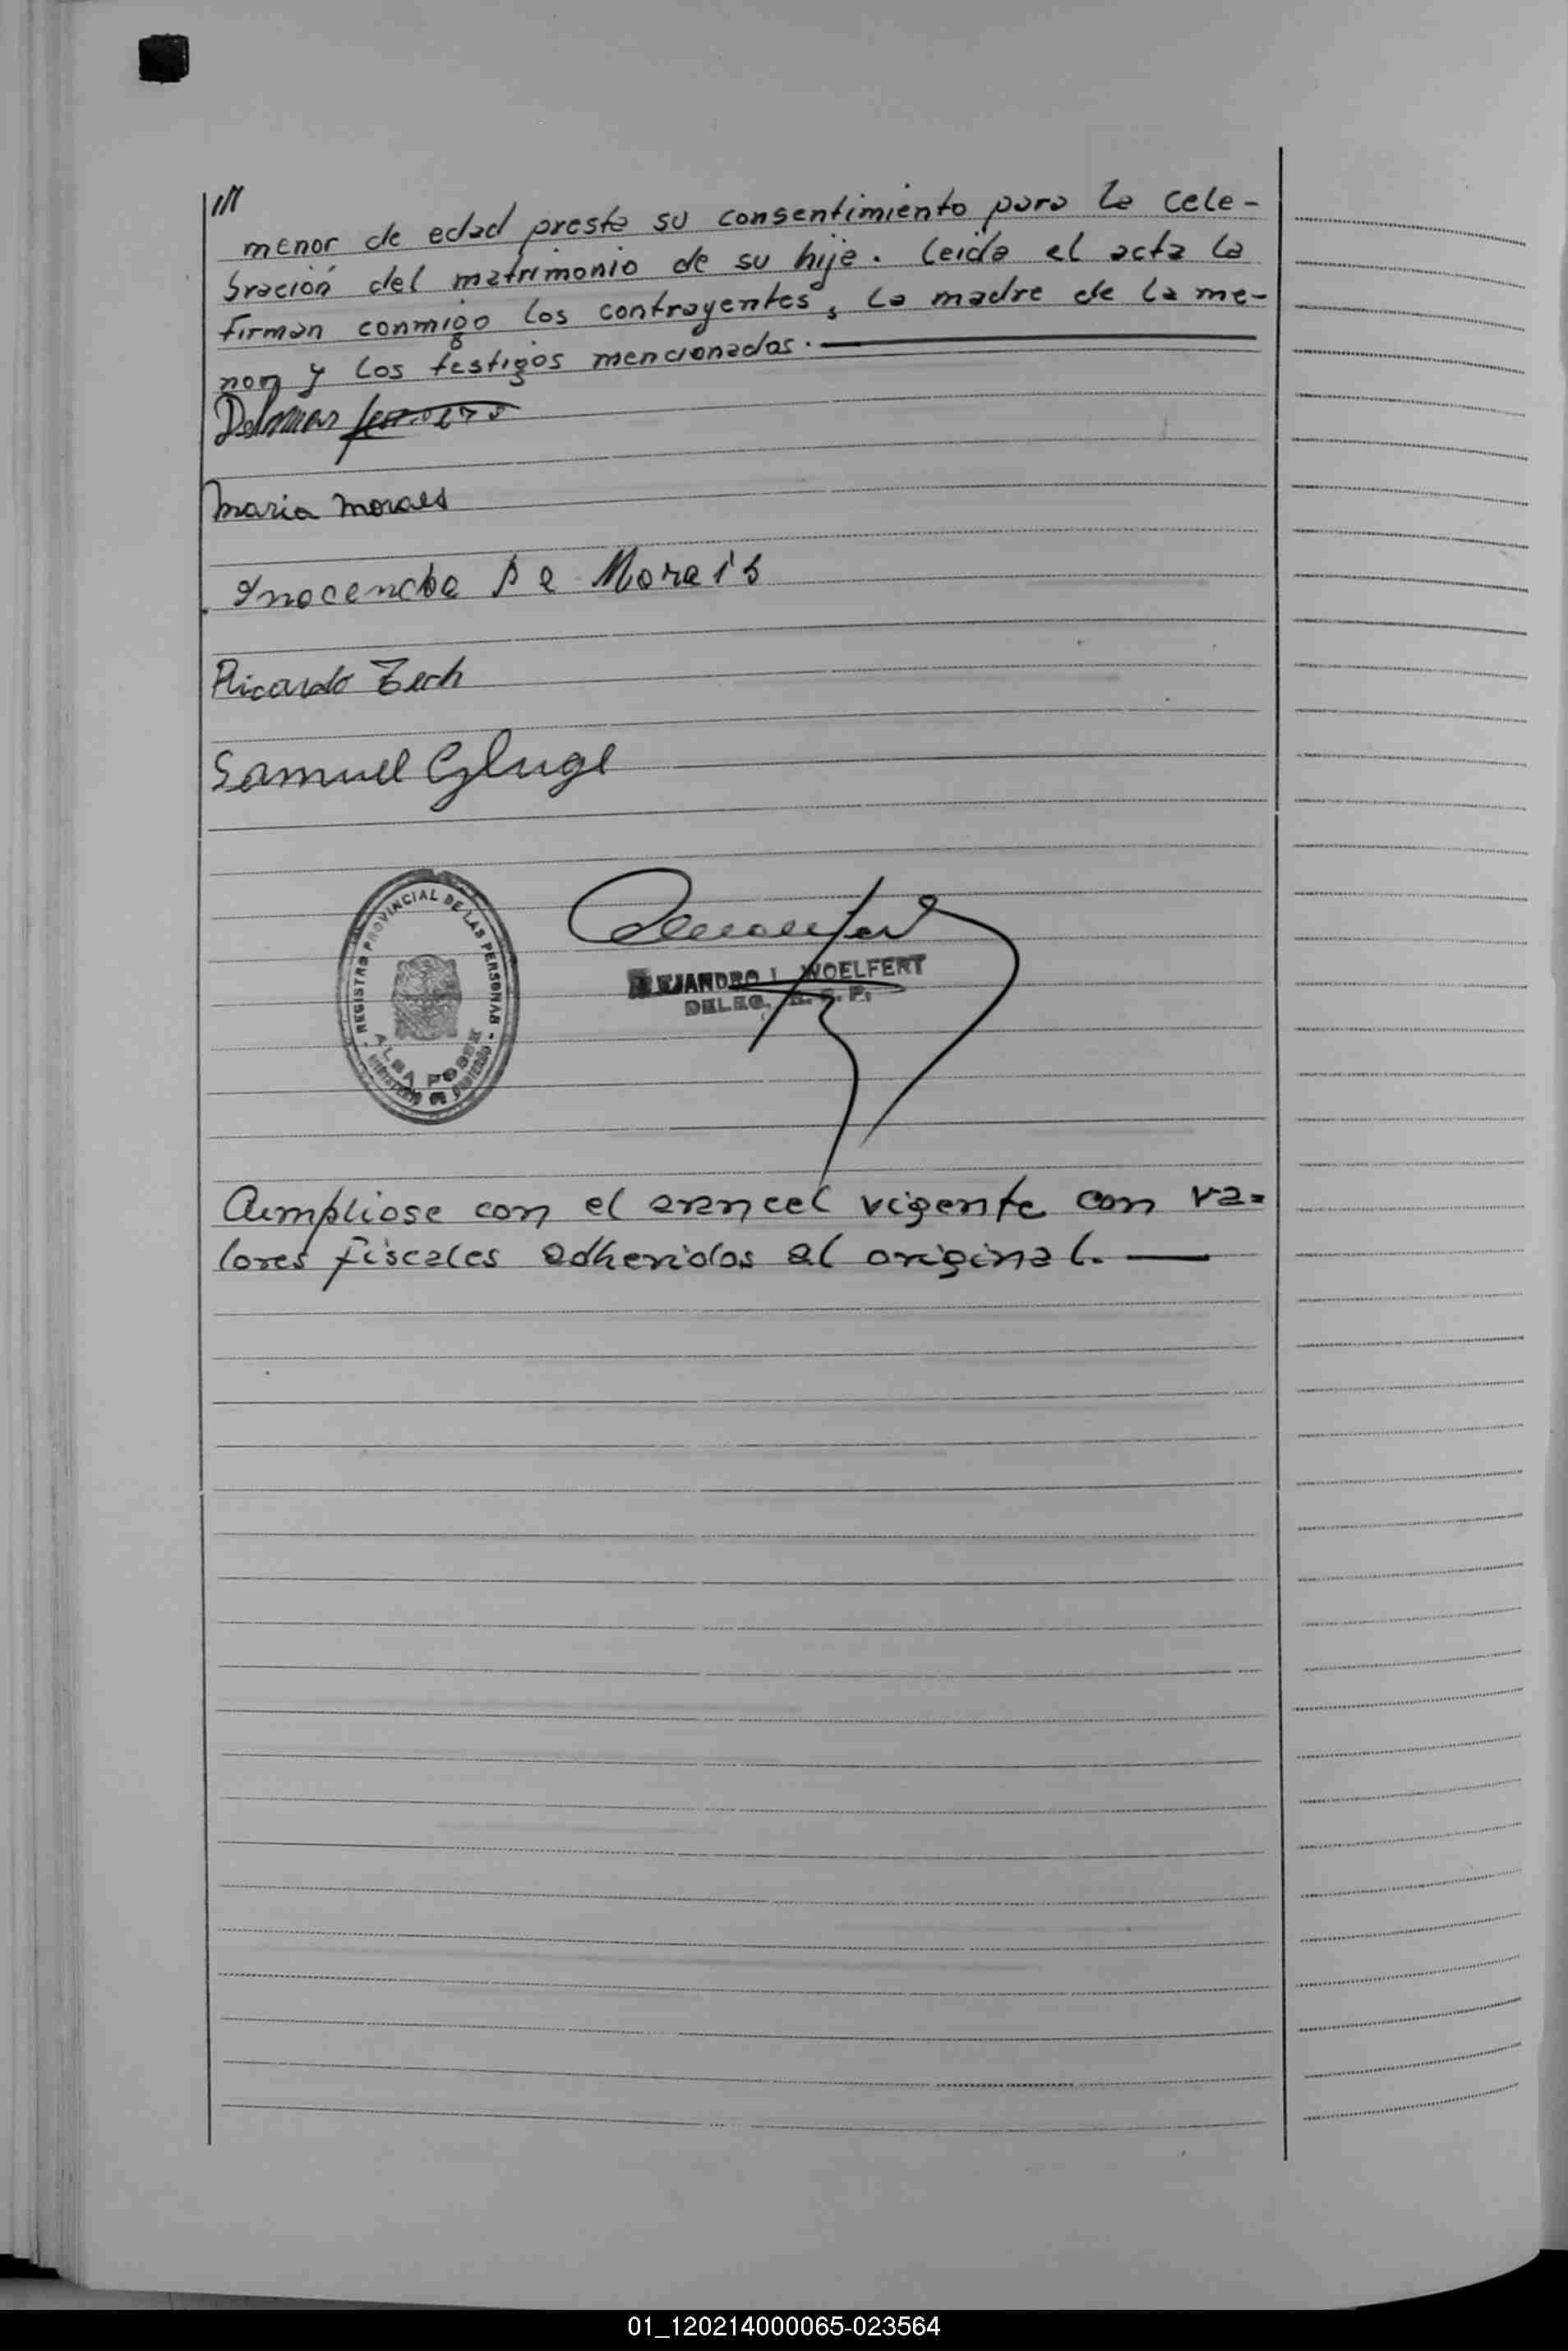 ///
menor de edad presta su consentimiento para la cele-
bración del matrimonio de su hija. Leida el acta la
firman conmigo los contrayentes, la madre de la me-
nor y los testigos mencionados.
Maria Moraes
Ricardo Zech
Samuel Gluge
REGISTRO PROVINCIAL DE LAS PERSONAS
ALBA POSSE
MINISTERIO DE GOBIERNO
EJANDRO L. WOELFERT
DELEG. R. P.
Cumpliose con el arancel vigente con va=
lores fiscales adheridos al original.
01_120214000065-023564